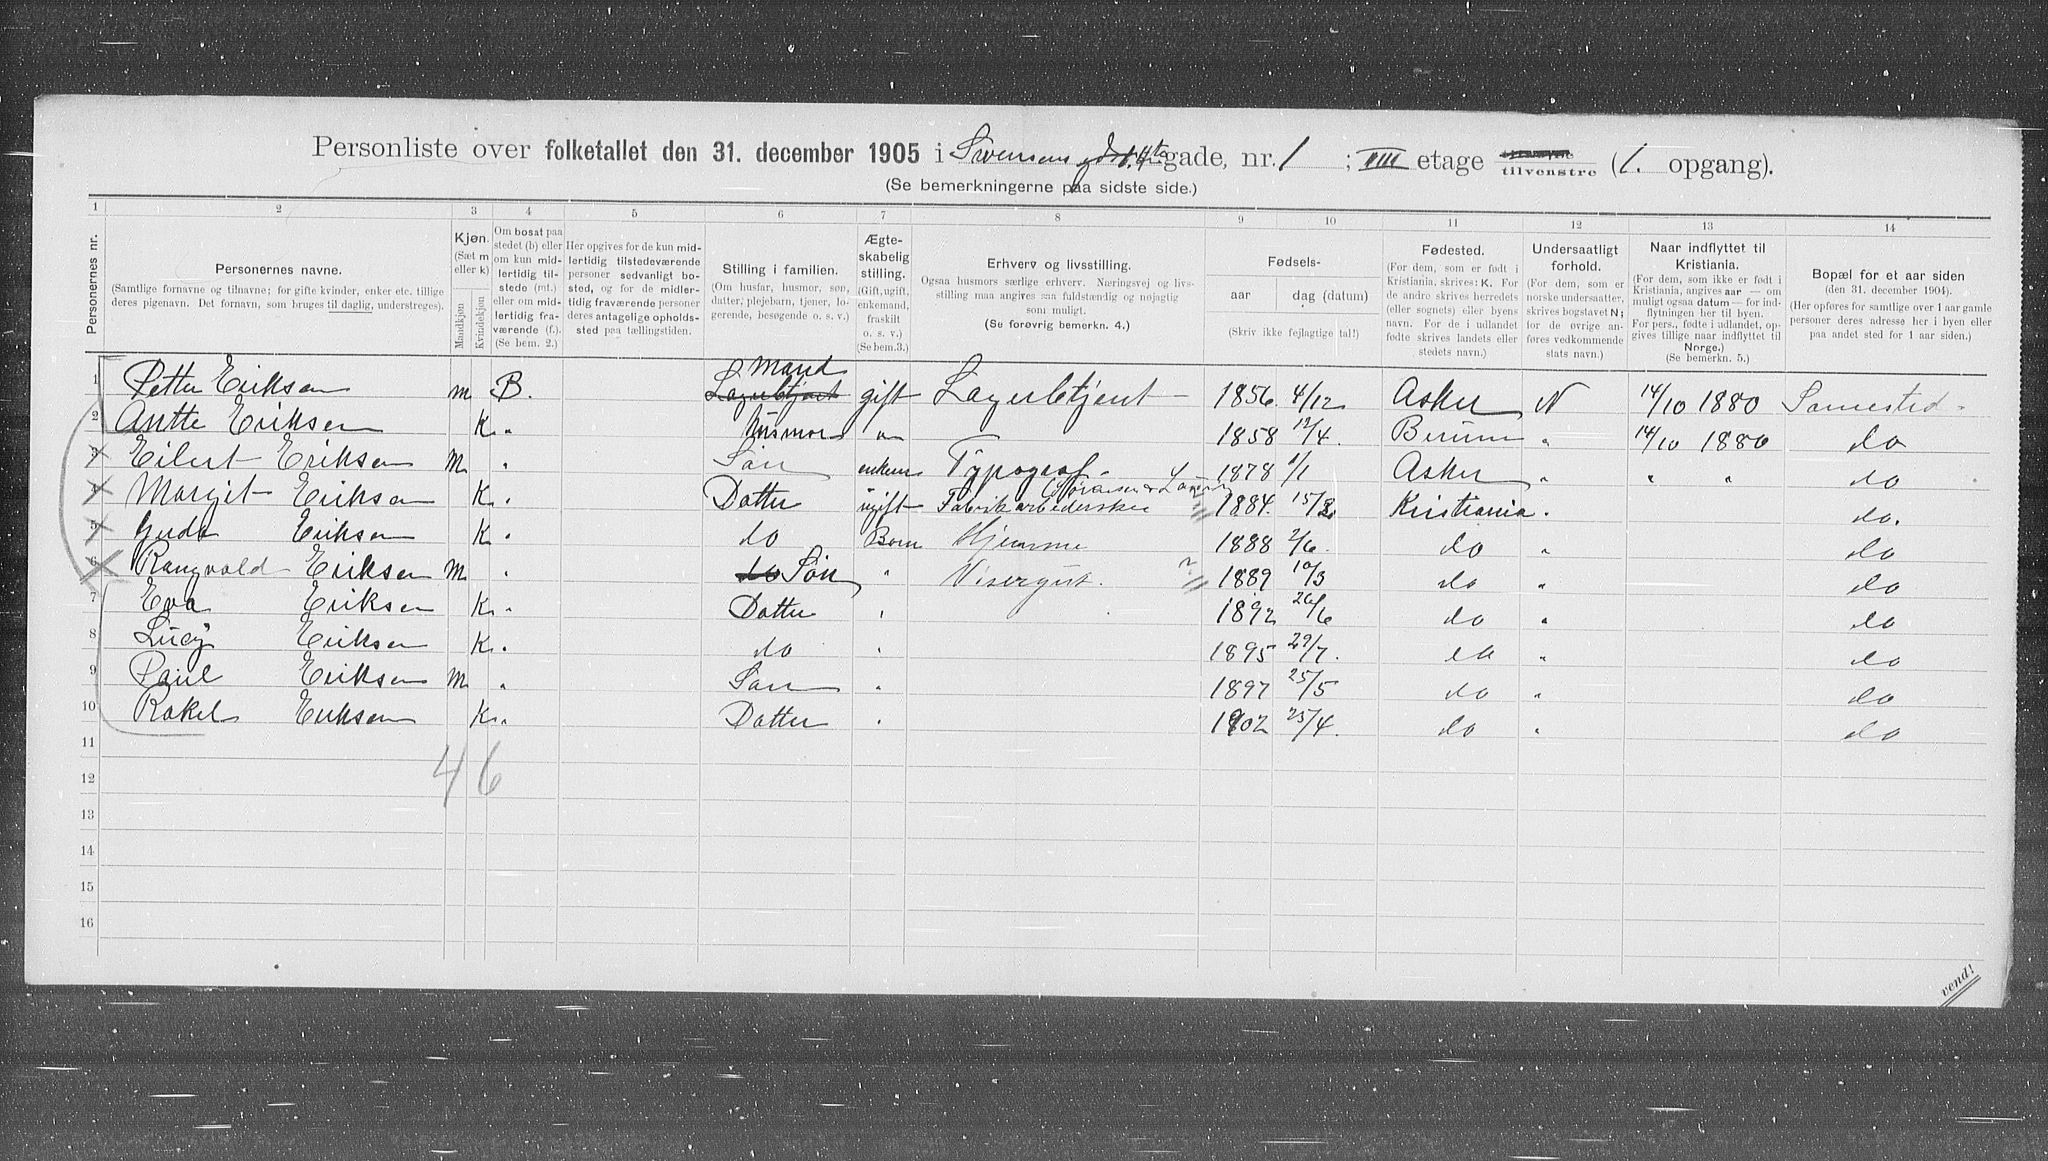 Personliste over folketallet den 31. december 1905 i Svensens gade, nr. 1 ; III etage tilvenstre (1. opgang).
(Se bemerkningerne paa sidste side.)
1 2 3 4 5 6 7 8 9 10 11 12 13 14
Personernes nr.
Personernes navne.
(Samtlige fornavne og tilnavne; for gifte kvinder, enker etc. tillige
deres pigenavn. Det fornavn, som bruges til daglig, understreges).
Kjøn.
(Sæt m
eller k)
Mandkjøn
Kvindekjøn
Om bosat paa
stedet (b) eller
om kun mid-
lertidig til-
stede (mt.)
eller om mid-
lertidig fra-
værende (f.).
(Se bem. 2.)
Her opgives for de kun mid-
lertidig tilstedeværende
personer sedvanligt bo-
sted, og for de midler-
tidig fraværende personer
deres antagelige opholds-
sted paa tællingstiden.
Stilling i familien.
(Om husfar, husmor, søn,
datter, plejebarn, tjener, lo-
gerende, besøgende o. s. v.)
Ægte-
skabelig
stilling.
(Gift, ugift,
enkemand,
fraskilt
o. s. v.)
(Se bem.3.)
Erhverv og livsstilling.
Ogsaa husmors særlige erhverv. Næringsvej og livs-
stilling maa angives saa fuldstændig og nøjagtig
som muligt.
(Se forøvrig bemerkn. 4.)
Fødsels-
aar dag (datum)
(Skriv ikke fejlagtige tal!)
Fødested.
(For dem, som er født i
Kristiania, skrives: K. For
de andre skrives herredets
(eller sognets) eller byens
navn. For de i udlandet
fødte skrives landets eller
stedets navn.)
Undersaatligt
forhold.
(For dem, som er
norske undersaatter,
skrives bogstavet N;
for de øvrige an-
føres vedkommende
stats navn.)
Naar indflyttet til
Kristiania.
(For dem, som ikke er født i
Kristiania, angives aar — om
muligt ogsaa datum — for ind-
flytningen her til byen.
For pers., fødte i udlandet, op-
gives tillige naar indflyttet til
Norge.)
(Se bemerkn. 5.)
Bopæl for et aar siden
(den 31. december 1904).
(Her opføres for samtlige over 1 aar gamle
personer deres adresse her i byen eller
paa andet sted for 1 aar siden.)
Mand
1 Petter Eriksen m B. Lagerbetjent gift Lagerbetjent 1856 4/12 Asker N 14/10 1880 Samested
2 Antte Eriksen K. " Husmor " 1858 12/4. Berum " 14/10 1880 do
3 Eilert Eriksen M " Søn enkem Typograf 1878 1/1 Asker " " " do
4 Margit Eriksen K. " Datter ugift Fabrikarbederske 1884. 15/3. Kristiania " do.
5 Eriksen K. " do Barn Hjemme 1888 2/6. do " do
6 Rangvald Eriksen M " do Søn " Visergut. 1889 10/3 do " do
7 Eva Eriksen K. " Datter " 1892 26/6 do " do
8 Lucy Eriksen K. " do " 1895 29/7. do " do
9 Paul Eriksen M " Søn " 1897 25/5 do " do
10 Rakel Eriksen K. " Datter " 1902 25/4. do " do
11
4 6
12
13
14
15
16
vend!